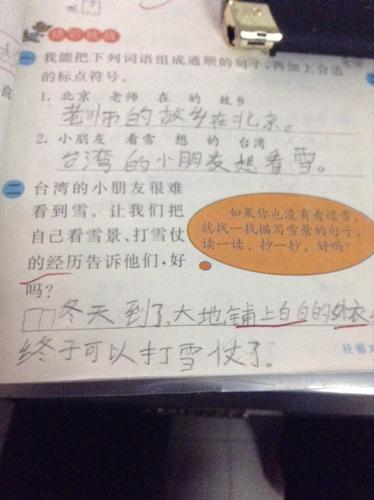 呢?
我能把下列词语组成通顺的句子,再加上合适
的标点符号。
1. 北京 老师 在 的 故乡
老师的故乡在北京。
2. 小朋友 看雪 想 的 台湾
台湾的小朋友想看雪。
二 台湾的小朋友很难
看到雪。让我们把
自己看雪景、打雪仗
的经历告诉他们,好
吗?
如果你也没有看过雪,
就找一找描写雪景的句子,
读一读、抄一抄,好吗?
冬天到了,大地铺上白白的外衣
终于可以打雪仗了。